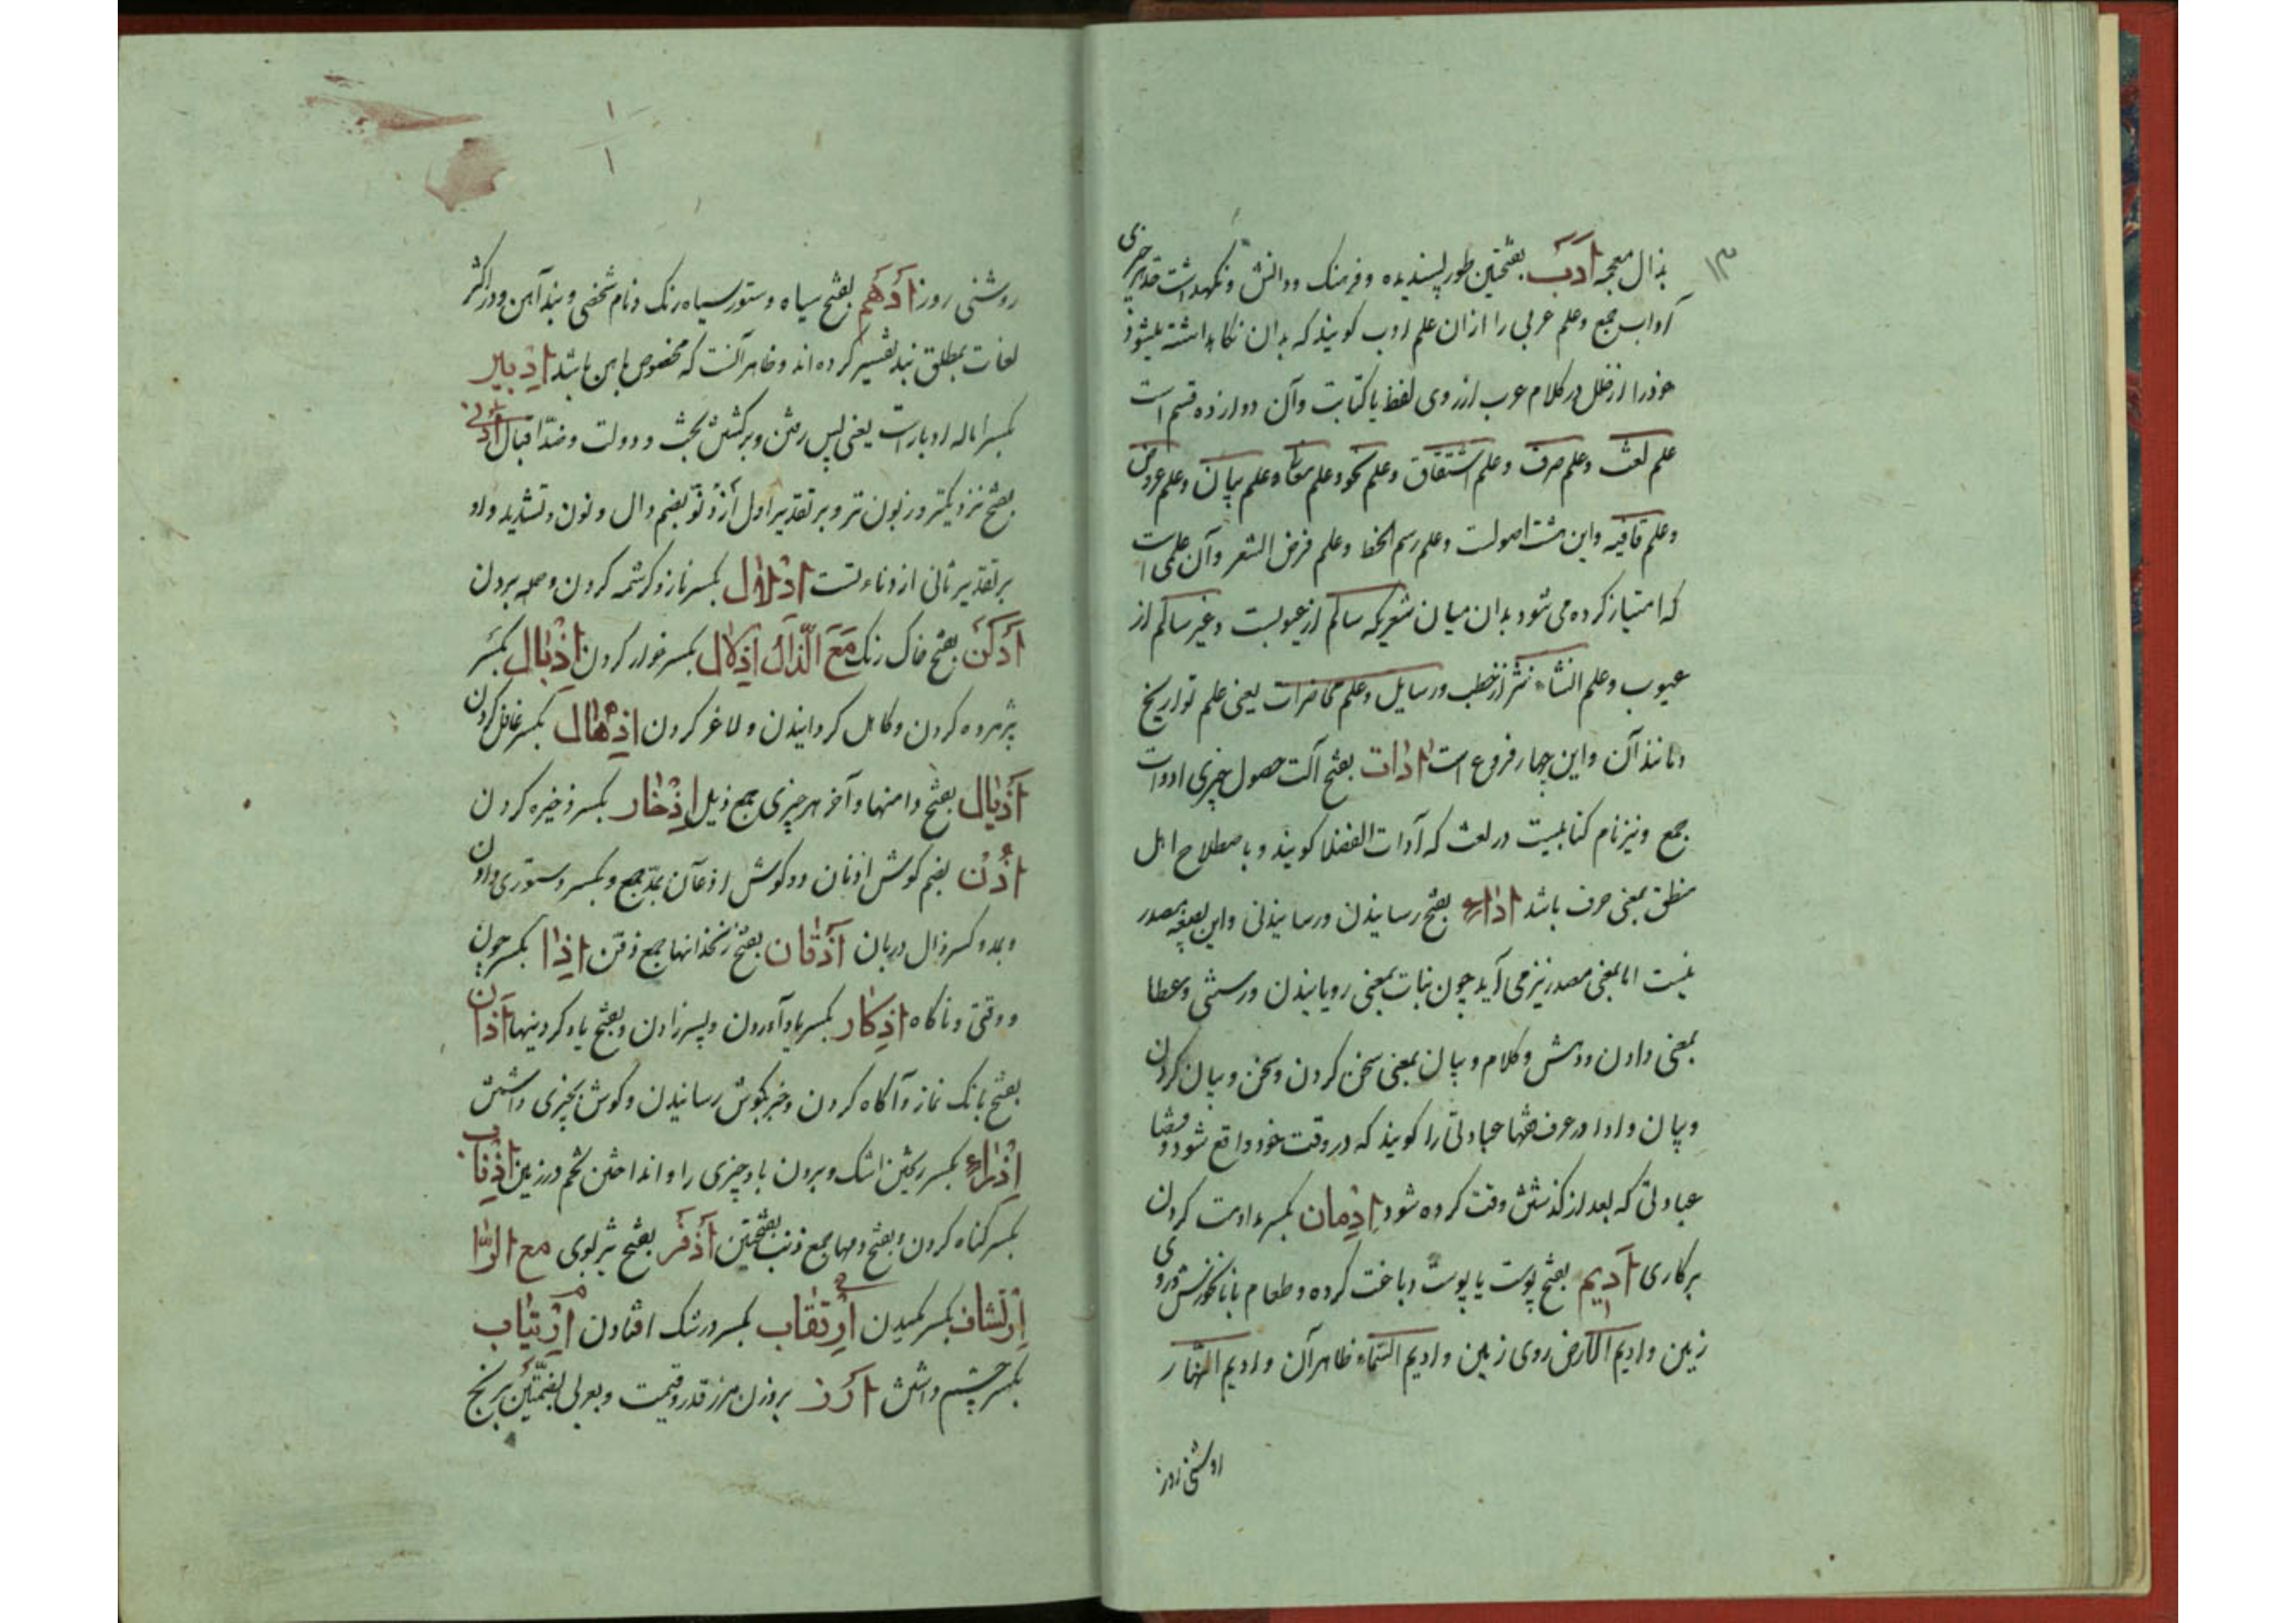 ۱۳
بذال معجمه اَدَبْ بفتحتین طور پسندیده و فرهنک و دانش و نکهداشت حد هر چیزی
آداب جمع و علم عربی را ازان علم ادب کویند که بدان نکاه داشته میشود
خود را از خلل در کلام عرب از روی لفظ یا کتابت وآن دوازده قسم است
علم لغت وعلم صرف وعلم اشتقاق وعلم نحو وعلم معانی وعلم بیان وعلم عروض
وعلم قافیه واین هشت اصولست وعلم رسم الخط وعلم قرض الشعر وآن علمی است
که امتیاز کرده می شود بدان میان شعریکه سالم از عیوبست وغیر سالم از
عیوب وعلم انشاء نثر از خطب ورسایل وعلم محاضرات یعنی علم تواریخ
ومانند آن واین چهار فروع است ادات بفتح آلت حصول چیزی ادوات
جمع ونیز نام کتابیست در لغت که آدات الفضلا کویند و باصطلاح اهل
منطق بمعنی حرف باشد اداء بفتح رسانیدن ورسانیدنی واین صیغه مصدر
نیست اما بمعنی مصدر نیز می آید چون نبات بمعنی رویانیدن ورستنی وعطا
بمعنی دادن ودهش وکلام وبیان بمعنی سخن کردن وسخن وبیان کردن
وبیان وادا در عرف فقها عبادتی را کویند که در وقت خود واقع شود وقضا
عبادتی که بعد از کذشتن وقت کرده شود اِدْمان بکسر مداومت کردن
برکاری اَدیم بفتح پوست یا پوست دباغت کرده وطعام با نانخورش وروی
زمین وادیم الارض روی زمین وادیم السماء ظاهر آن وادیم النهار
روشنی روز
۱
۱
روشنی روز اَدْهَم بفتح سیاه وستور سیاه رنک ونام شخصی وبند آهن ودر اکثر
لغات بمطلق بند تفسیر کرده اند وظاهر آنست که مخصوص باهن باشد اِدْبیر
بکسر اماله ادبارست یعنی پس رفتن وبرکشتن بخت ودولت وضد اقبال اَدْنی
بفتح نزدیکتر وزبون تر وبر تقدیر اول از دُنُوّ بضم دال ونون وتشدید واو
بر تقدیر ثانی از دناءتست اِدْلال بکسر ناز وکرشمه کردن وحمله بردن
اَدْکَن بفتح خاک رنک مَعَ الذّال اِذْلال بکسر خوار کردن اِذْبال بکسر
پژمرده کردن وکاهل کردانیدن ولاغر کردن اِذْهال بکسر غافل کردن
اَذْیال بفتح دامنها وآخر هر چیزی جمع ذیل اِذْخار بکسر ذخیره کردن
اُذُن بضم کوش اذنان دوکوش اذان بمد جمع وبکسر دستوری دادن
وبمد وکسر ذال دربان اَذْقان بفتح زنخدانها جمع ذقن اِذا بکسر چون
ووقتی وناکاه اِذْکار بکسر یاد آوردن وپسر زادن وبفتح یاد کردنها اَذان
بفتح بانک نماز وآکاه کردن وخبر بکوش رسانیدن وکوش بچیزی داشتن
اِذْراء بکسر ریختن اشک وبردن باد چیزی را وانداختن تخم در زمین اِذْناب
بکسر کناه کردن وبفتح دمها جمع ذنب بفتحتین اَذْفَر بفتح تیزبوی مع الرّا
اِرْتِشاف بکسر مکیدن اِرْتِقاب بکسر در شک افتادن اِرْتیاب
بکسر چشم داشتن اَرَز بروزن مرز قدر وقیمت وبعربی بضمتین برنج